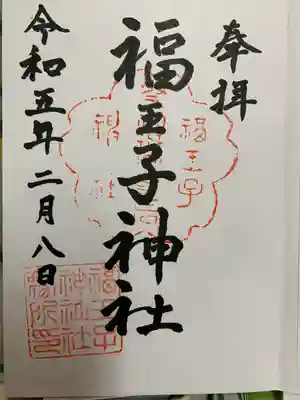 奉拝
福王子神社
令和五年二月八日
福王子
福王子
神社社
務所印